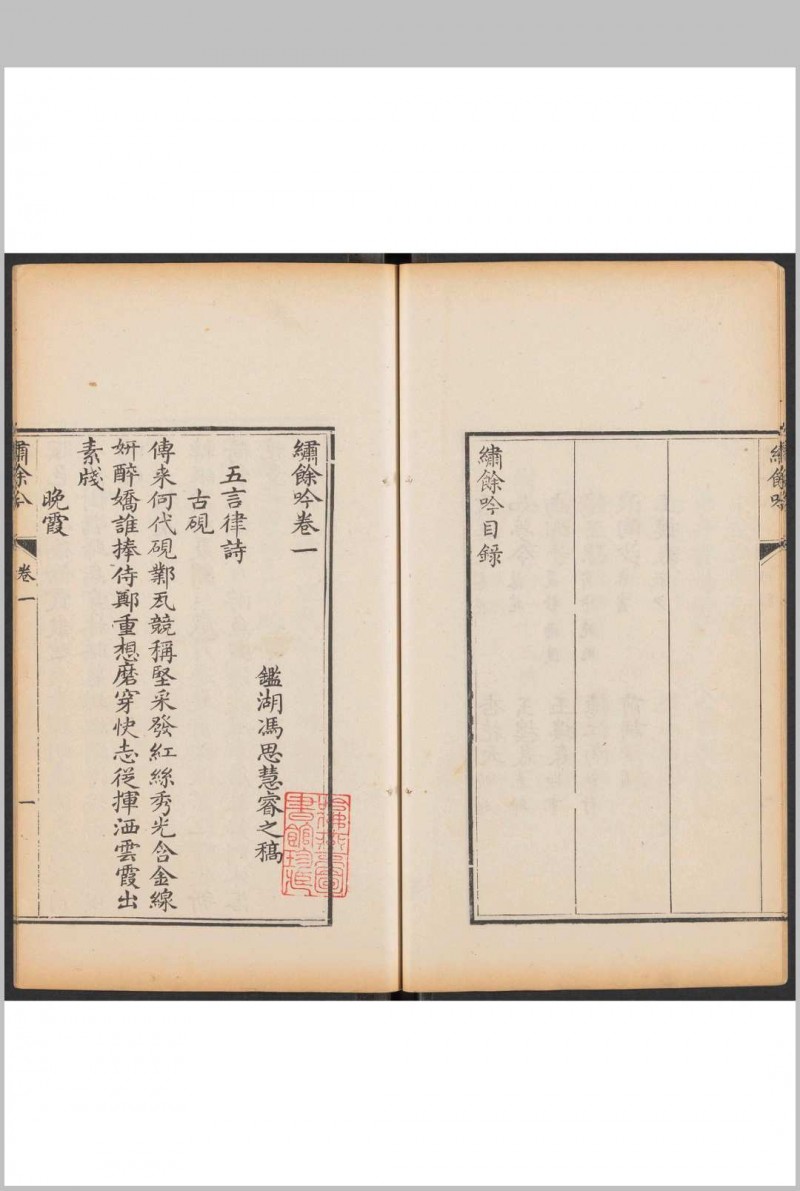 繡餘吟
繡餘吟目録
繡餘吟卷一
鑑湖馮思慧睿之稿
五言律詩
古硯
傳来何代硯鄴瓦競稱堅采發紅絲秀光含金線
妍醉嬌誰捧侍鄭重想磨穿快志從揮洒雲霞出
素牋
晚霞
繡餘吟
卷一
一
哈佛燕京圖書館珍藏